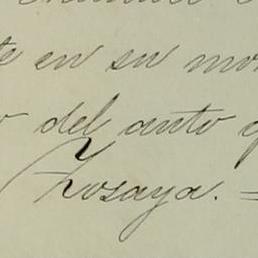 te en su mo
o del auto q
Zosaya. =